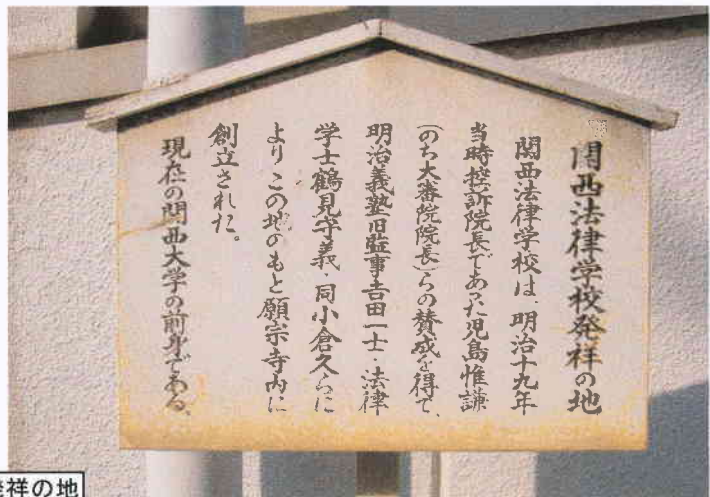 関西法律学校発祥の地
関西法律学校は、明治十九年
当時控訴院長であった児島惟謙
(のち大審院院長)らの賛成を得て、
明治義塾旧監事吉田一士・法律
学士鶴見守義・同小倉久らに
よりこの地のもと願宗寺内に
創立された。
現在の関西大学の前身である。
発祥の地